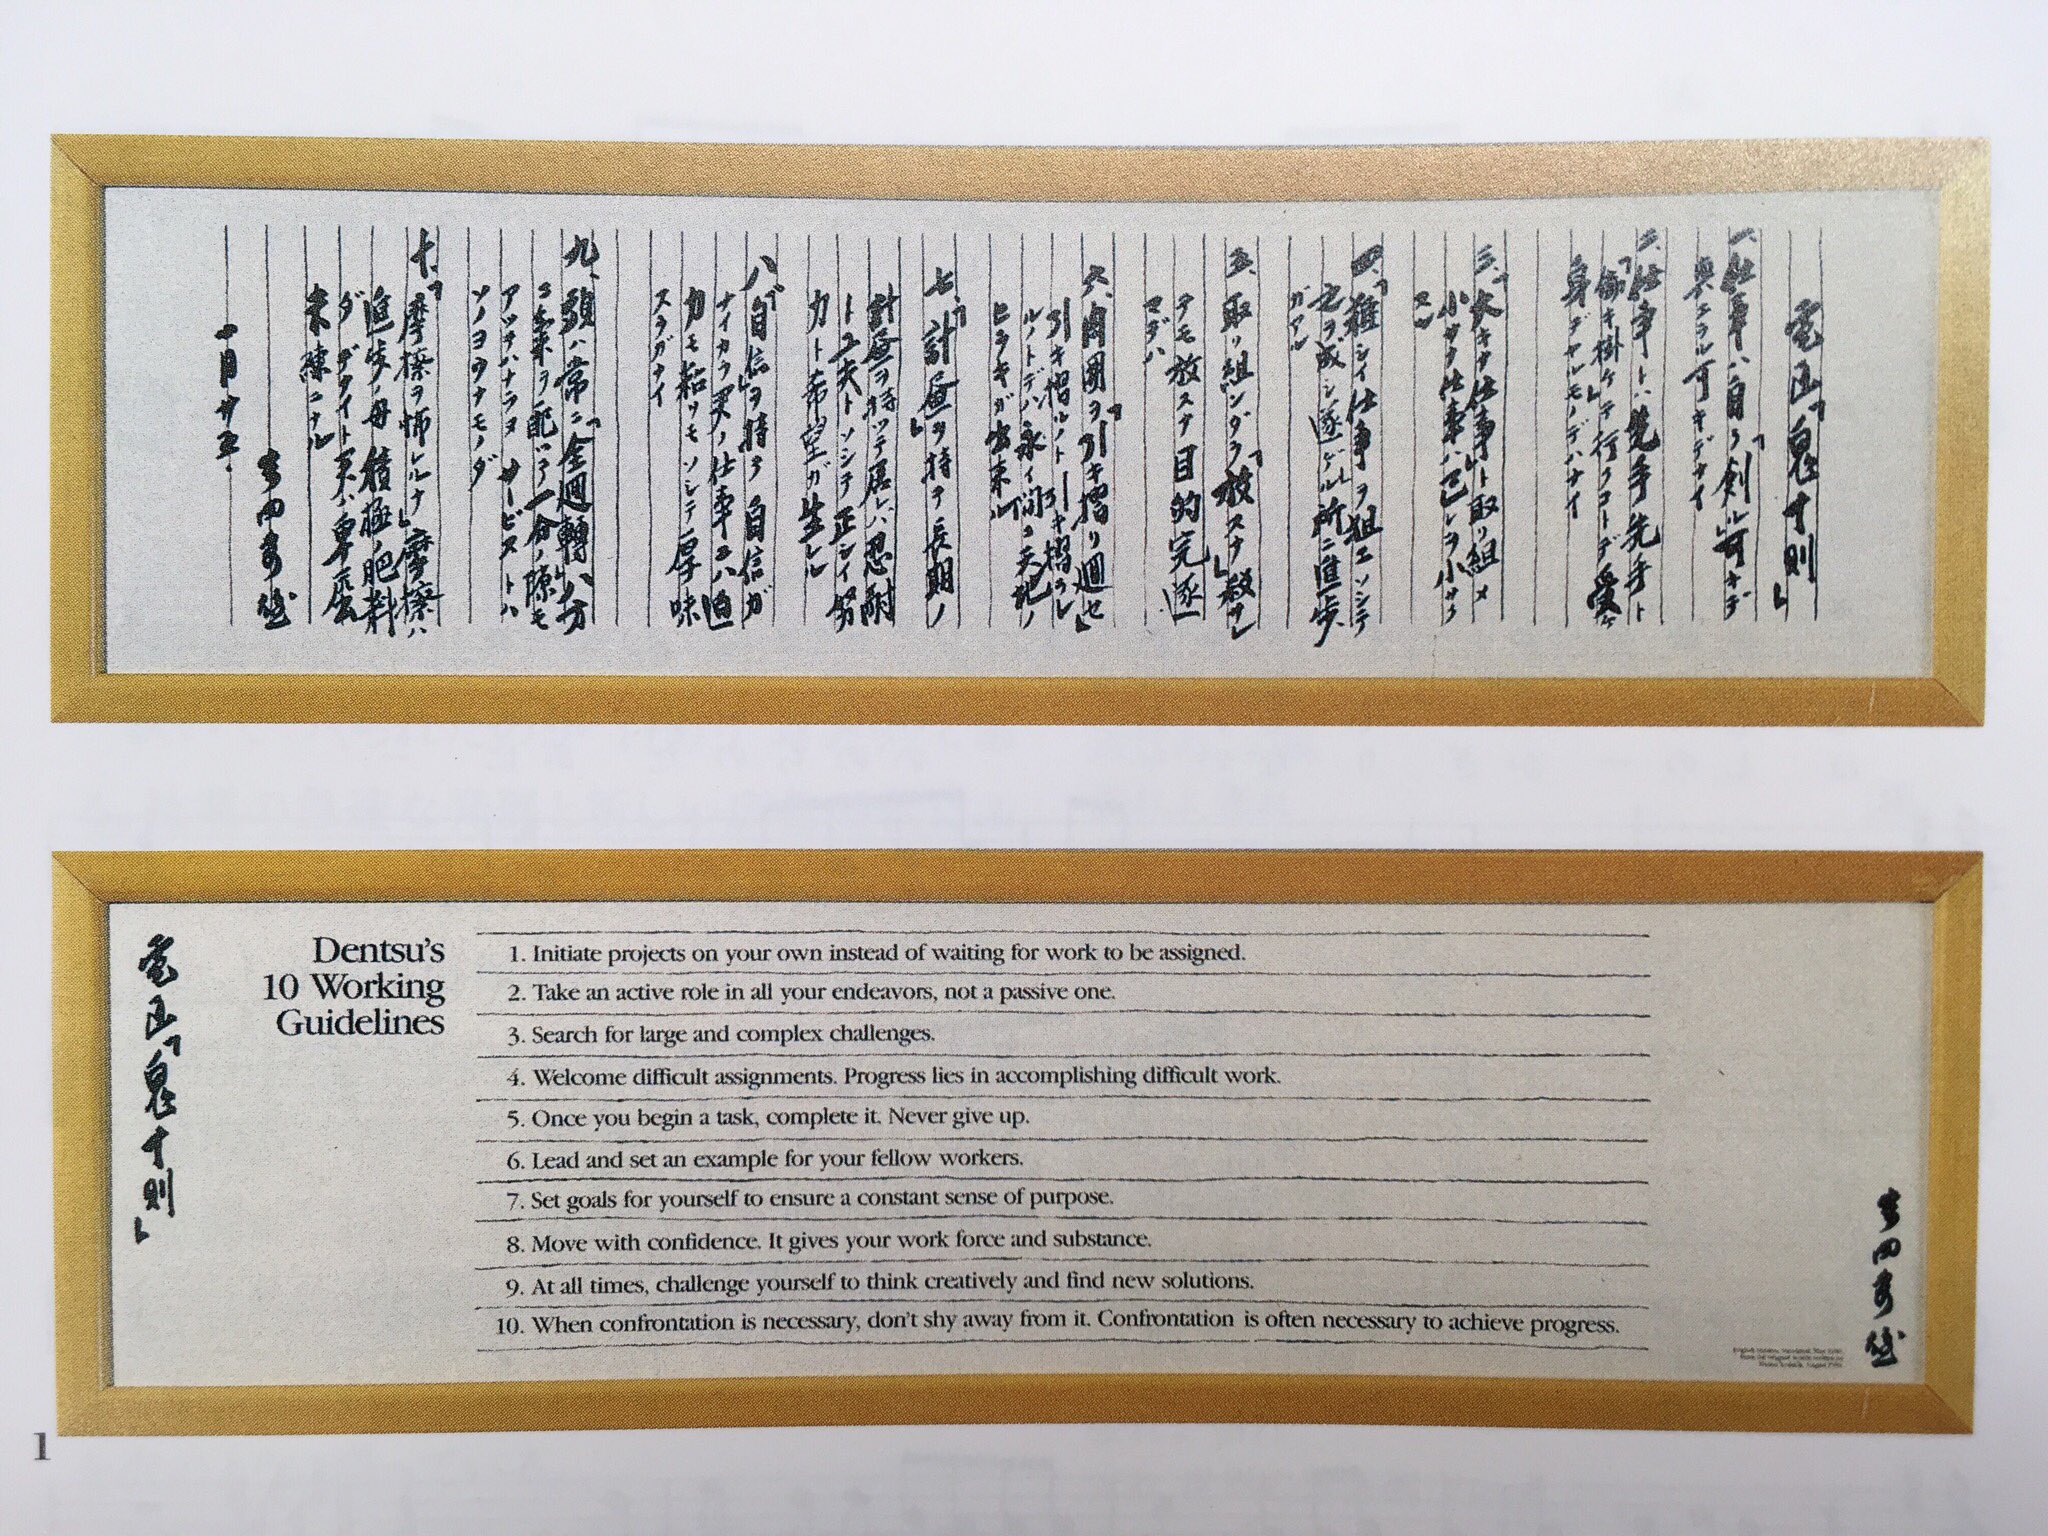 電通「鬼十則」
一、仕事ハ自ラ「創ル」可キデ
與エラル可キデナイ
二、仕事トハ先手先手ト
「働キ掛ケ」テ行クコトデ受ケ
身デヤルモノデハナイ
三、「大キナ仕事」ト取リ組メ
小サナ仕事ハ己レヲ小サク
スル
四、「難シイ仕事」ヲ狙エソシテ
之ヲ成シ遂ゲル所ニ進歩
ガアル
五、取リ組ンダラ「放スナ」殺サレ
テモ放スナ目的完遂
マデハ
六、周囲ヲ「引キ摺リ廻セ」
引キ摺ルノト引キ摺ラレ
ルノトデハ永イ間ニ天地ノ
ヒラキガ出來ル
七、「計畫」ヲ持テ長期ノ
計畫ヲ持ッテ居レバ忍耐
ト工夫トソシテ正シイ努
力ト希望ガ生レル
八、「自信」ヲ持テ自信ガ
ナイカラ君ノ仕事ニハ迫
力モ粘リモソシテ厚味
スラガナイ
九、頭ハ常ニ「全廻轉」八方
ニ氣ヲ配ッテ一分ノ隙モ
アッテハナラヌ サービストハ
ソノヨウナモノダ
十、「摩擦ヲ怖レルナ」摩擦ハ
進歩ノ母積極ノ肥料
ダ デナイト君ハ卑屈
未練ニナル
吉田秀雄
十月廿五、
電通「鬼十則」
Dentsu's
10 Working
Guidelines
1. Initiate projects on your own instead of waiting for work to be assigned.
2. Take an active role in all your endeavors, not a passive one.
3. Search for large and complex challenges.
4. Welcome difficult assignments. Progress lies in accomplishing difficult work.
5. Once you begin a task, complete it. Never give up.
6. Lead and set an example for your fellow workers.
7. Set goals for yourself to ensure a constant sense of purpose.
8. Move with confidence. It gives your work force and substance.
9. At all times, challenge yourself to think creatively and find new solutions.
10. When confrontation is necessary, don't shy away from it. Confrontation is often necessary to achieve progress.
吉田秀雄
1